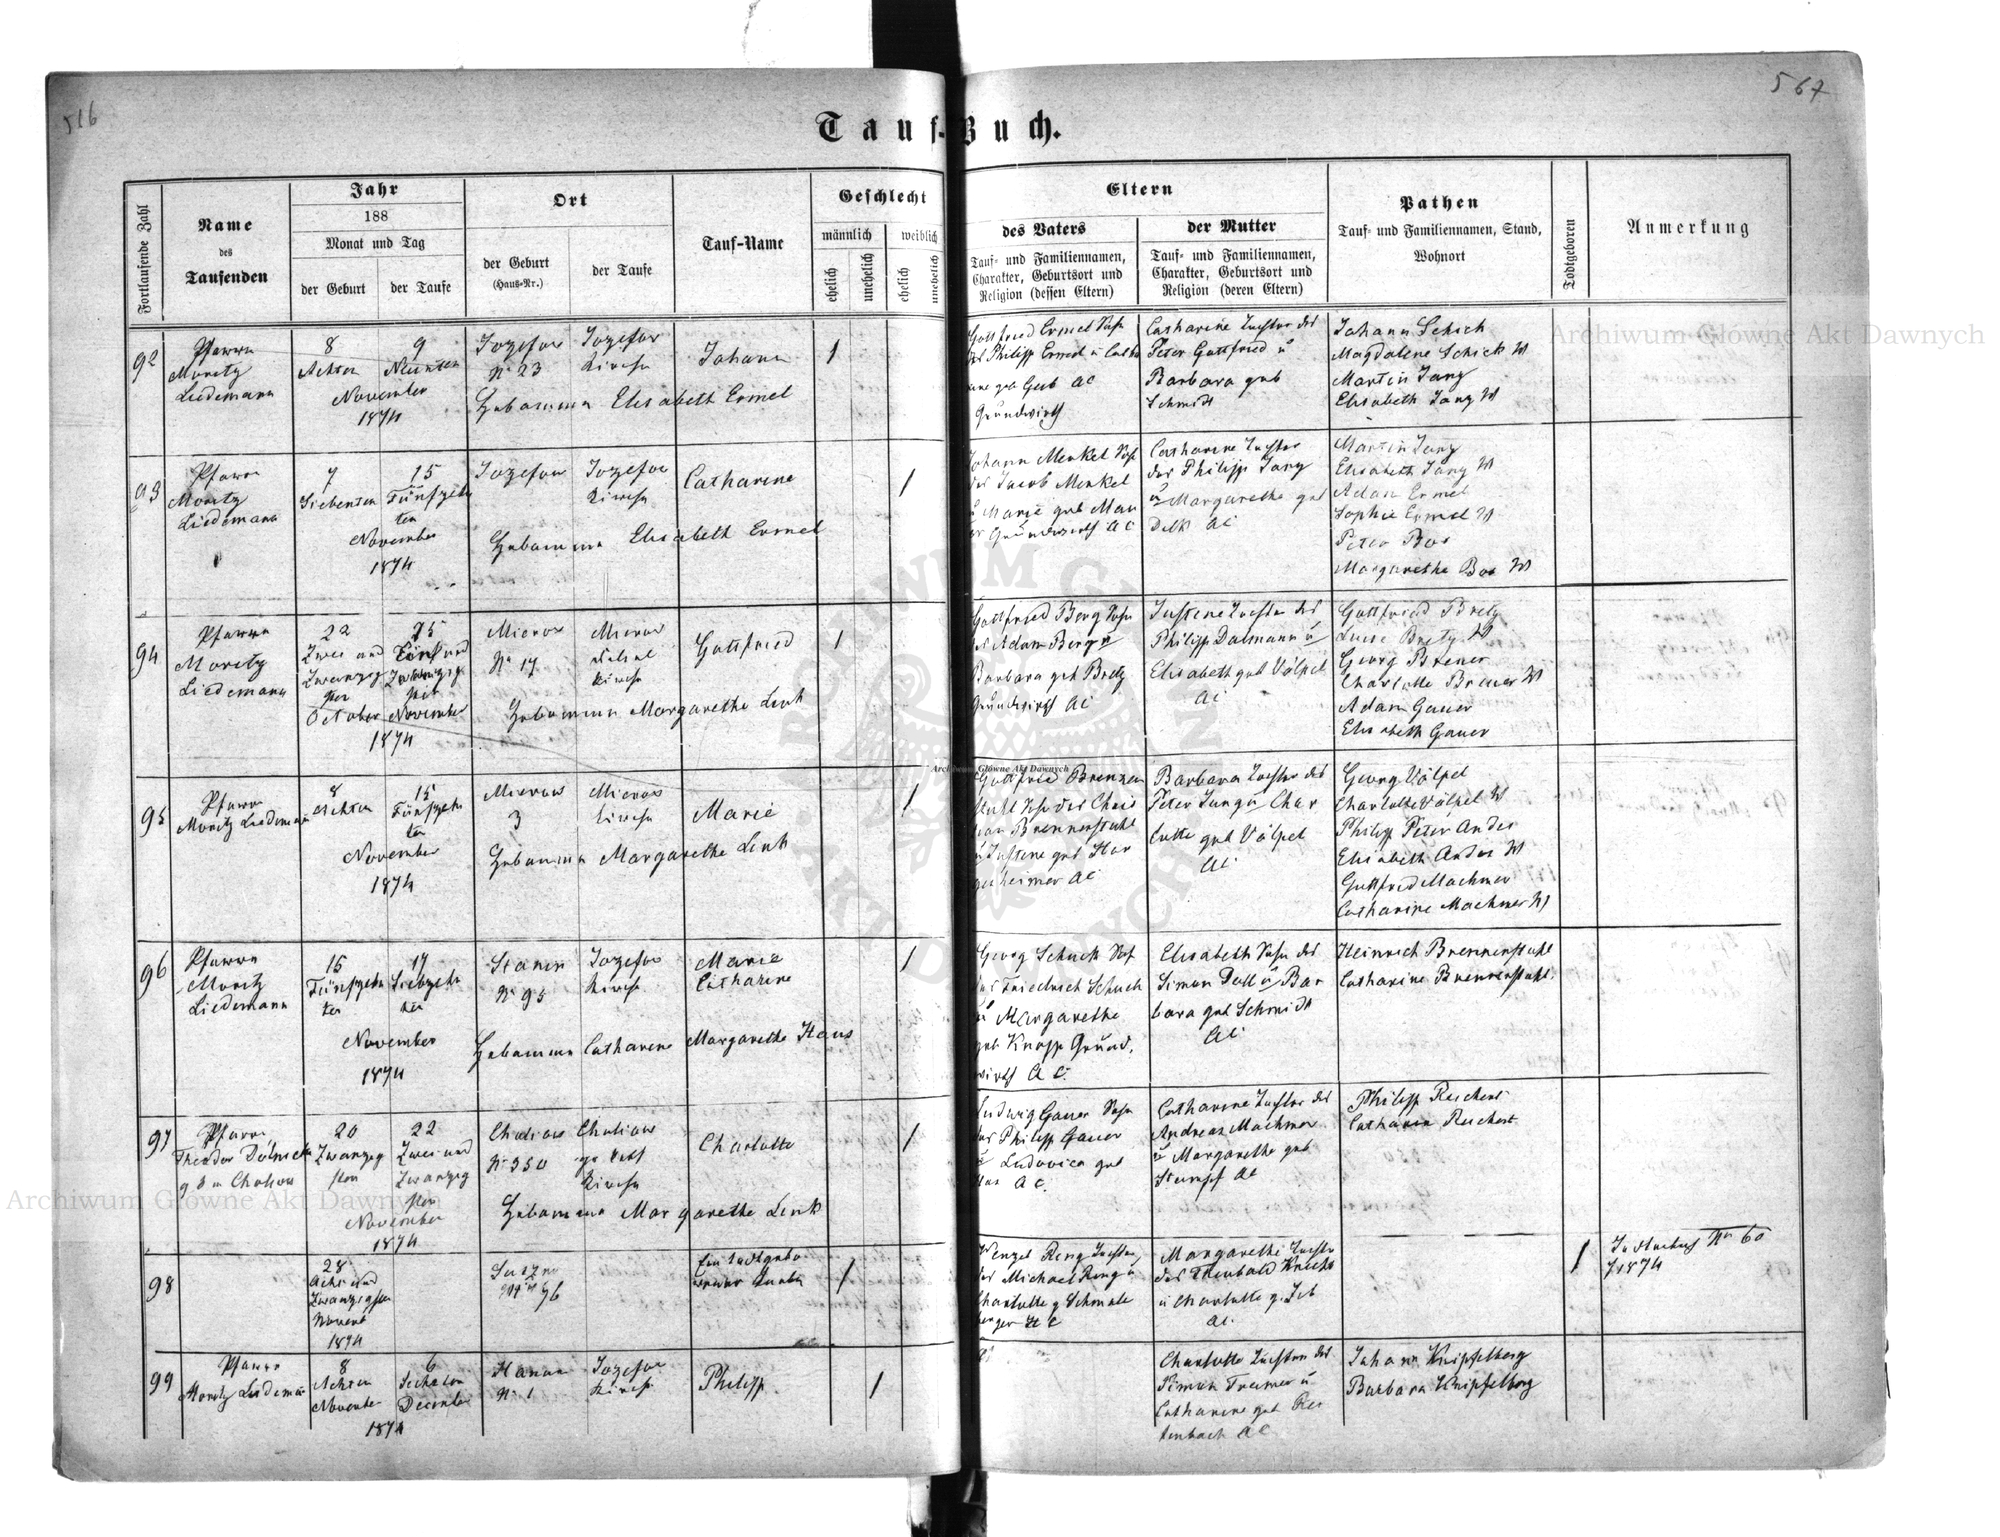 516
567
Tauf-Buch.
Fortlaufende Zahl
Name
des
Taufenden
Jahr
188
Monat und Tag
der Geburt
der Taufe
Ort
der Geburt
(Haus-Nr.)
der Taufe
Tauf-Name
Geschlecht
männlich
weiblich
ehelich
unehelich
ehelich
unehelich
Eltern
des Vaters
Tauf- und Familiennamen,
Charakter, Geburtsort und
Religion (dessen Eltern)
der Mutter
Tauf- und Familiennamen,
Charakter, Geburtsort und
Religion (deren Eltern)
Pathen
Tauf- und Familiennamen, Stand,
Wohnort
Todtgeboren
Anmerkung
92
Pfarrer
Moritz
Liedemann
8
Achten
9
Neunten
November
1874
Jozefow
No 23
Jozefow
Kirche
Hebamme Elisabeth Ermel
Johann
1
Gottfried Ermel Sohn
des Philipp Ermel u Catha
rine geb Geib AC
Grundwirth
Catharine Tochter des
Peter Gottfried u
Barbara geb
Schmidt
Johann Schick
Magdalene Schick W
Martin Jang
Elisabeth Jang W
93
Pfarrer
Moritz
Liedemann
7
Siebenten
15
Fünfzehn
ten
November
1874
Jozefow
Jozefow
Kirche
Hebamme Elisabeth Ermel
Catharine
1
Johann Menkel Sohn
des Jacob Menkel
u Marie geb Mau
er Grundwirth AC
Catharine Tochter
des Philipp Jang
u Margarethe geb
AC
Martin Jang
Elisabeth Jang W
Adam Ermel
Sophie Ermel W
Peter Bos
Margarethe Bos W
94
Pfarrer
Moritz
Liedemann
22
Zwei und
Zwanzig
sten
October
25
Fünf und
Zwanzig
sten
November
1874
Mierow
No 17
Mierow
Schul
Kirche
Hebamme Margarethe Link
Gottfried
1
Gottfried Berg Sohn
des Adam Berg u
Barbara geb Bretz
Grundwirth AC
Justine Tochter des
Philipp Dalmann u
Elisabeth geb Völpel
AC
Gottfried Bretz
Luise Bretz W
Georg Brener
Charlotte Brener W
Adam Gauer
Elisabeth Gauer
95
Pfarrer
Moritz Liedemann
8
Achten
15
Fünfzehn
ten
November
1874
Mierow
3
Mierow
Kirche
Hebamme Margarethe Link
Marie
1
Gottfried Brennen
stuhl Sohn des Chris
tian Brennenstuhl
u Justine geb Har
gesheimer AC
Barbara Tochter des
Peter Jung u Char
lotte geb Völpel
AC
Georg Völpel
Charlotte Völpel W
Philipp Peter Andes
Elisabeth Andes W
Gottfried Machmer
Catharine Machmer W
96
Pfarrer
Moritz
Liedemann
15
Fünfzehn
ten
17
Siebzehn
ten
November
1874
Stanin
No 95
Jozefow
Kirche
Hebamme Catharine Margarethe Haus
Marie
Catharine
1
Georg Schuck Sohn
des Friedrich Schuck
u Margarethe
geb Knopp Grund
wirth AC
Elisabeth Sohn des
Simon Doll u Bar
bara geb Schmidt
AC
Heinrich Brennenstuhl
Catharine Brennenstuhl
97
Pfarrer
Theodor
20
Zwanzig
sten
22
Zwei und
Zwanzig
sten
November
1874
Chaliow
No 350
Chaliow
Kirche
Hebamme Margarethe Link
Charlotte
1
Ludwig Gauer Sohn
des Philipp Gauer
u Ludovica geb
AC
Catharine Tochter des
Andreas Machmer
u Margarethe geb
Stumpf AC
Philipp Reichert
Catharin Reichert
98
28
Acht und
Zwanzigsten
Novemb
1874
96
Ein todtgebo
rener Knabe
1
Wenzel Ring
des Michael Ring u
Charlotte g Schmale
berger AC
Margarethe Tochter
des Theobald Knecht
u Charlotte g.
AC
1
No 60
1874
99
Pfarrer
Moritz Liedeman
8
Achten
November
6
Sechsten
December
1874
Hanun
No 1
Jozefow
Kirche
Philipp
1
Charlotte Tochter des
Simon Tremer u
Catharine geb Rei
fenbach AC
Johann Knipfelberg
Barbara Knipfelberg
Archiwum Główne Akt Dawnych
Archiwum Główne Akt Dawnych
Archiwum Główne Akt Dawnych